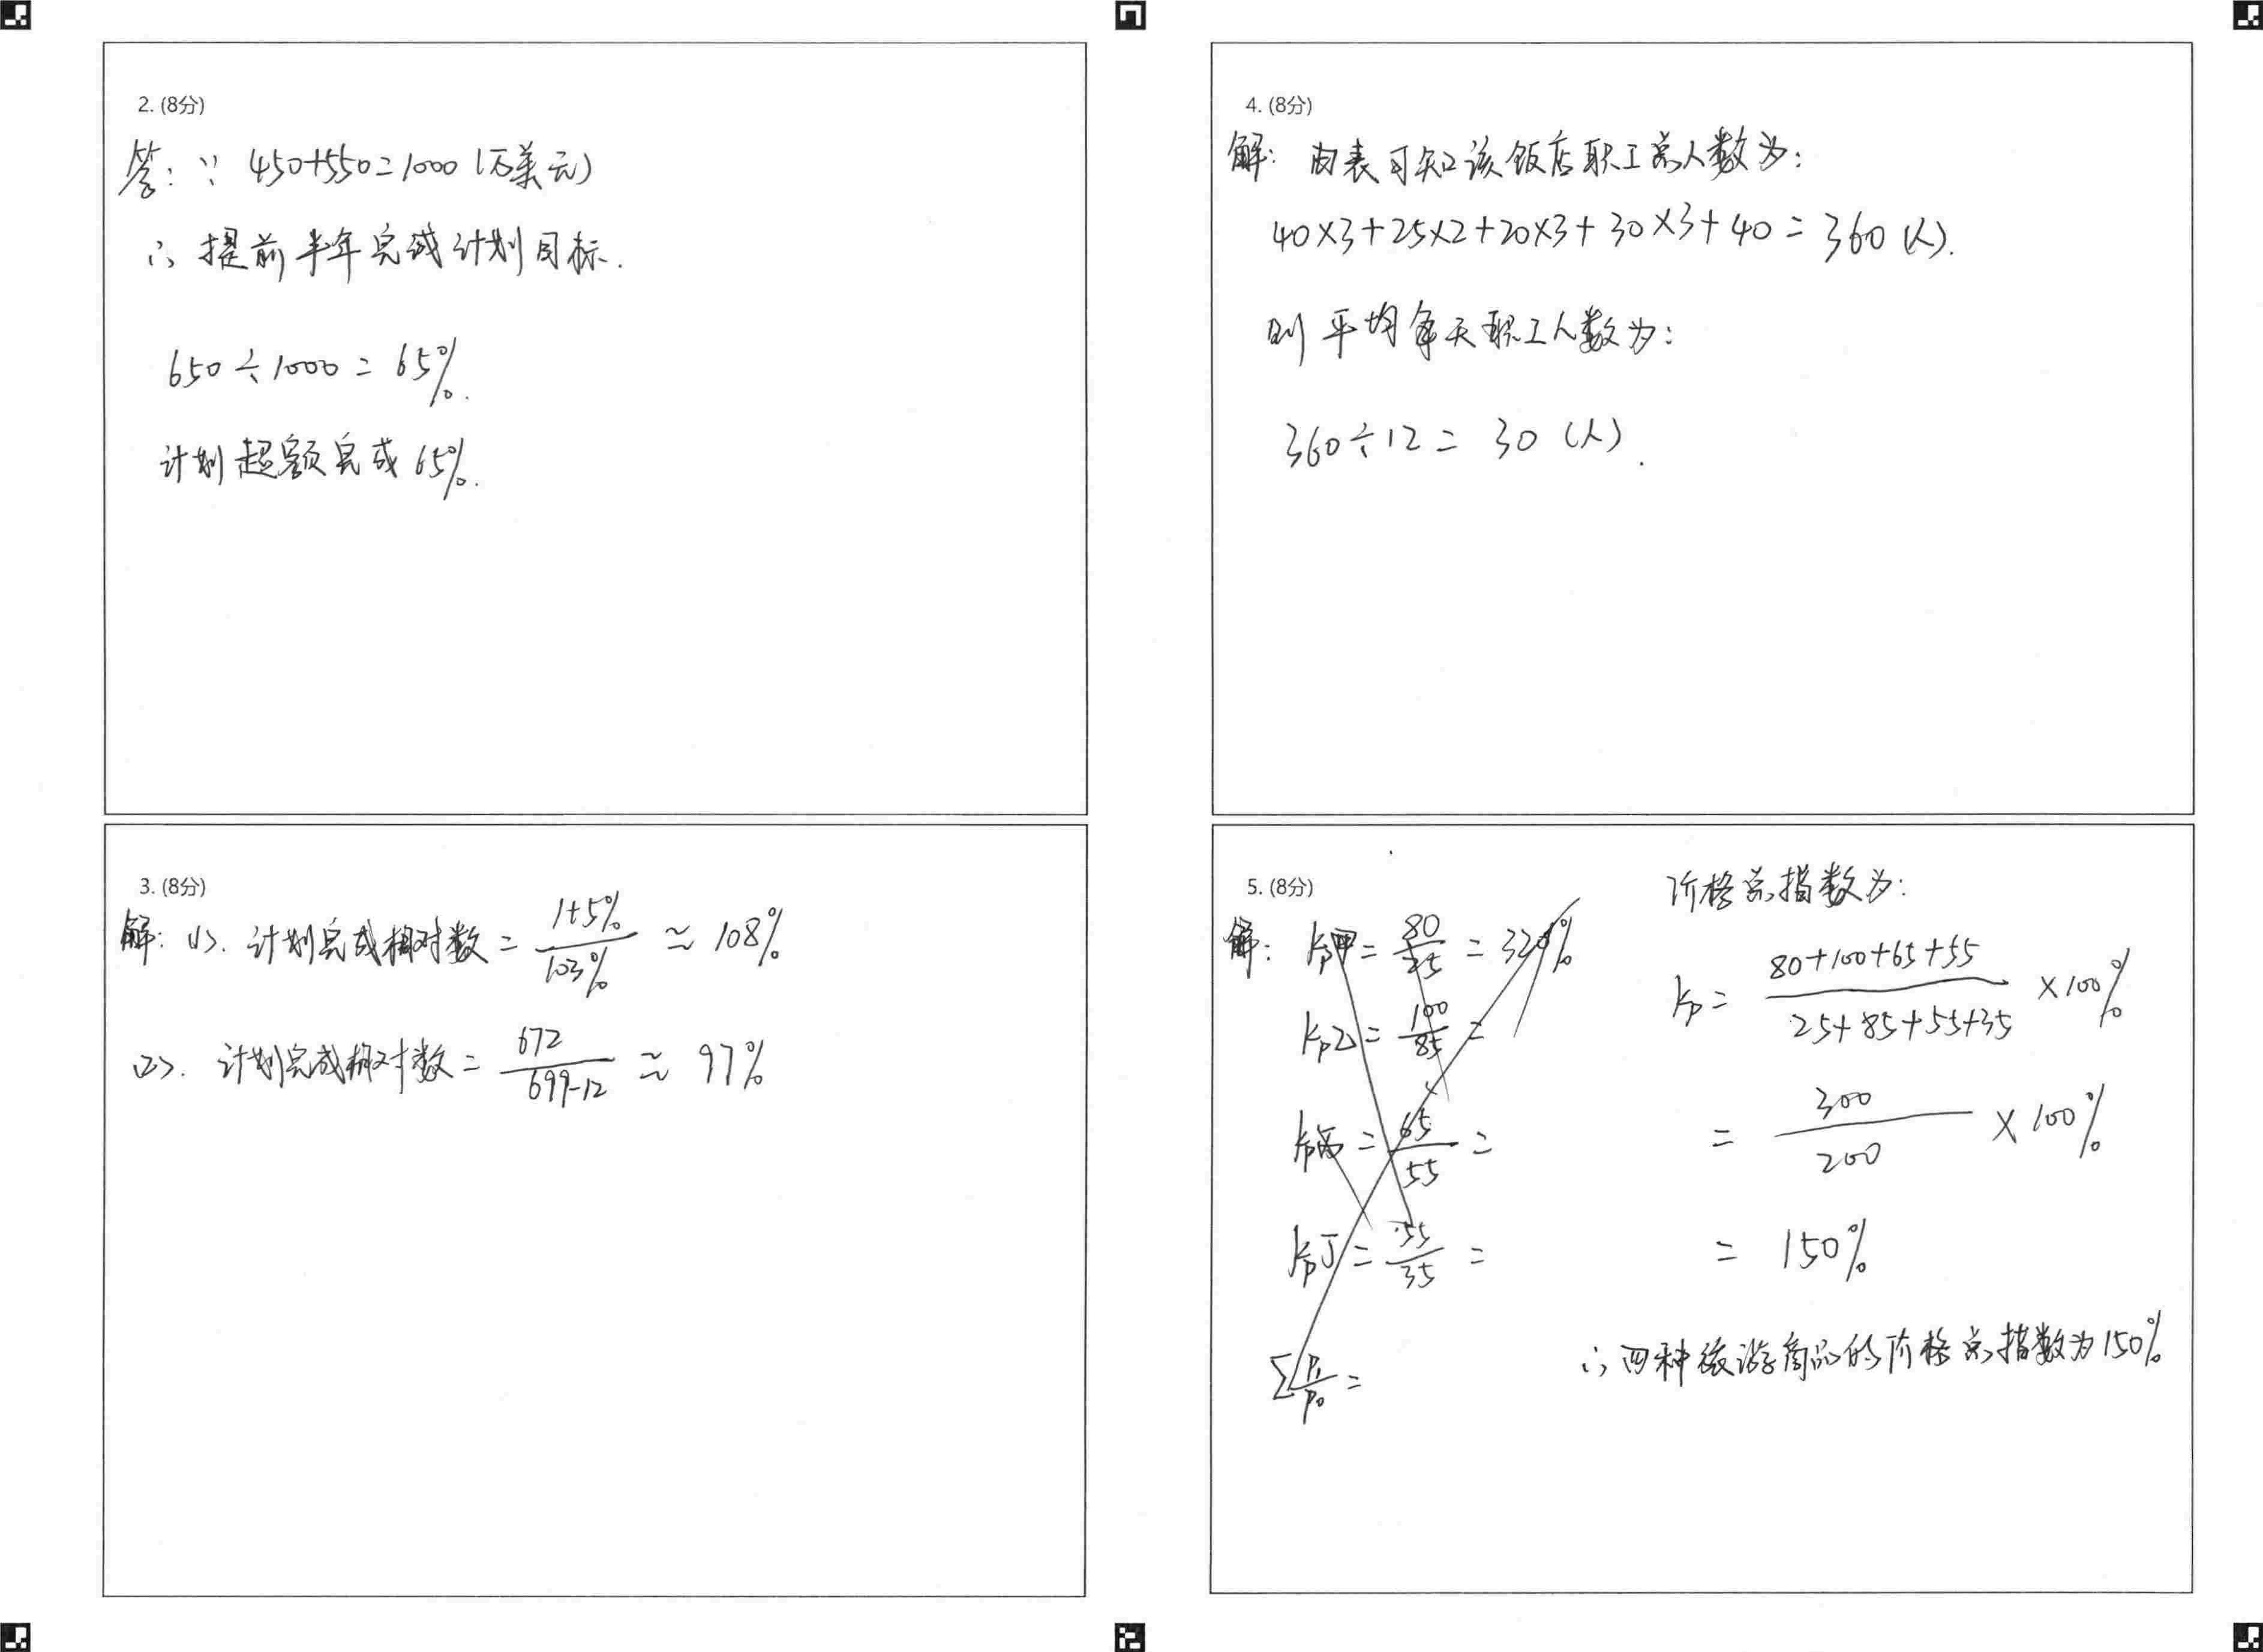 2. (8分)
答: ∵ 450+550=1000 (万美元)
∴ 提前半年完成计划目标.
650÷1000 = 65%.
计划超额完成65%.
3. (8分)
解: (1). 计划完成相对数 = (1+5%)/(103%) ≈ 108%
(2). 计划完成相对数 = 672/(699-12) ≈ 97%
4. (8分)
解: 由表可知该饭店职工总人数为:
40×3+25×2+20×3+30×3+40 = 360 (人).
则平均每天职工人数为:
360÷12 = 30 (人).
5. (8分)
解: Kp甲 = 80/25 = 320%
Kp乙 = 100/85 =
Kp丙 = 65/55 =
Kp丁 = 55/35 =
∑P₁/P₀ =
价格总指数为:
Kp = (80+100+65+55)/(25+85+55+35) ×100%
= 300/200 ×100%
= 150%
∴ 四种旅游商品的价格总指数为150%